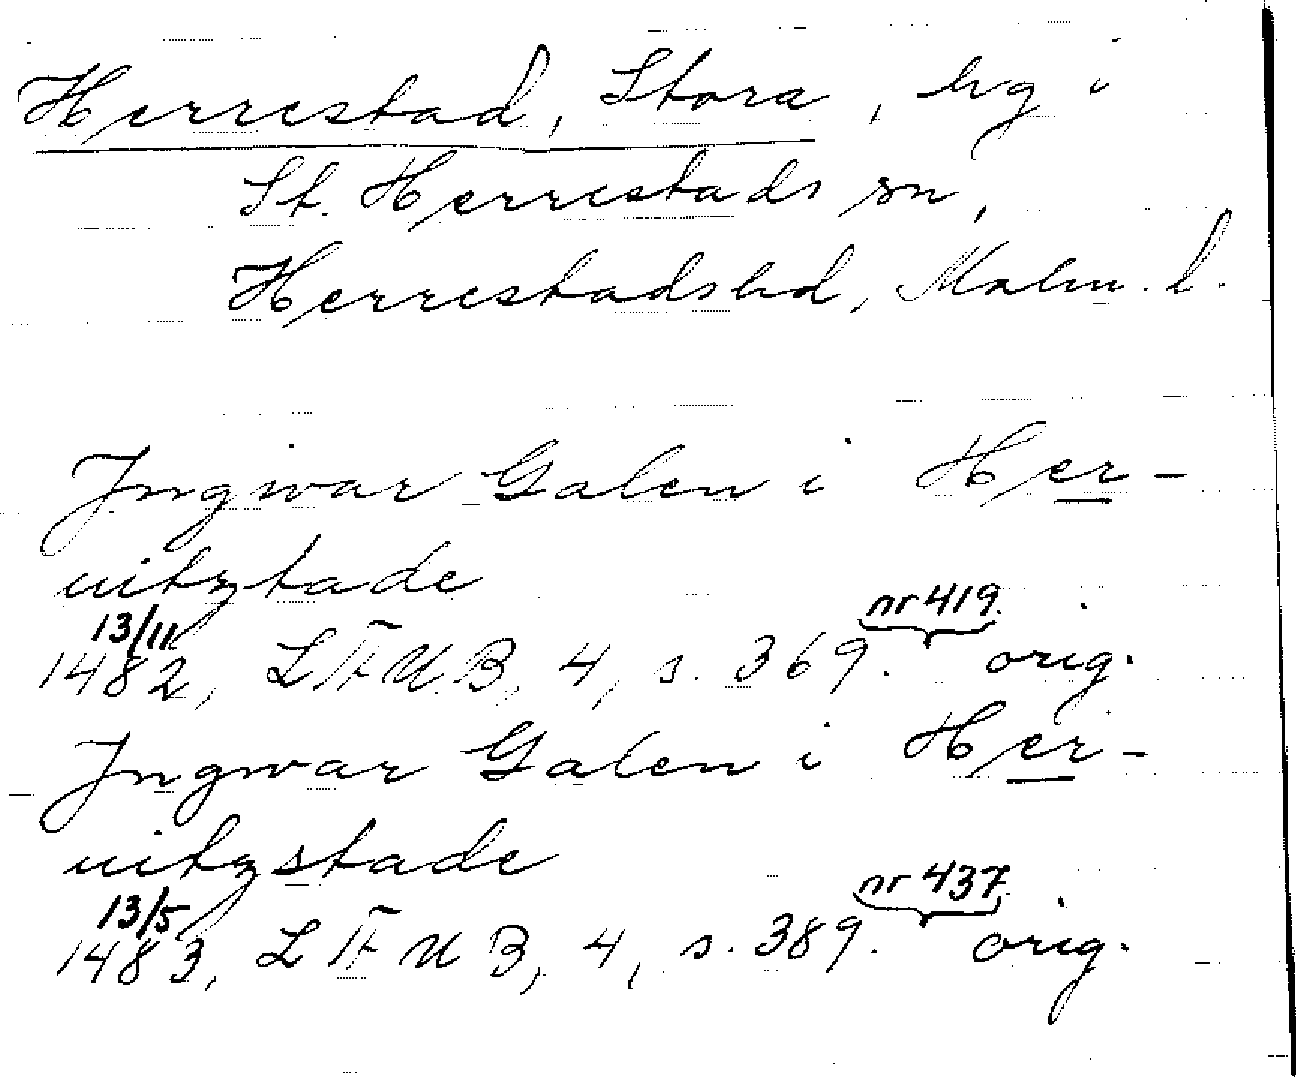 Herrestad, Stora, by i
St. Herrestads sn,
Herrestads hd, Malm. l.
Jngwar Galen i Her-
uitztade
13/11 nr 419.
1482, LÞUB, 4, s. 369. orig.
Jngwar Galen i Her-
uitzstade
13/5 nr 437.
1483, LÞUB, 4, s. 389. orig.